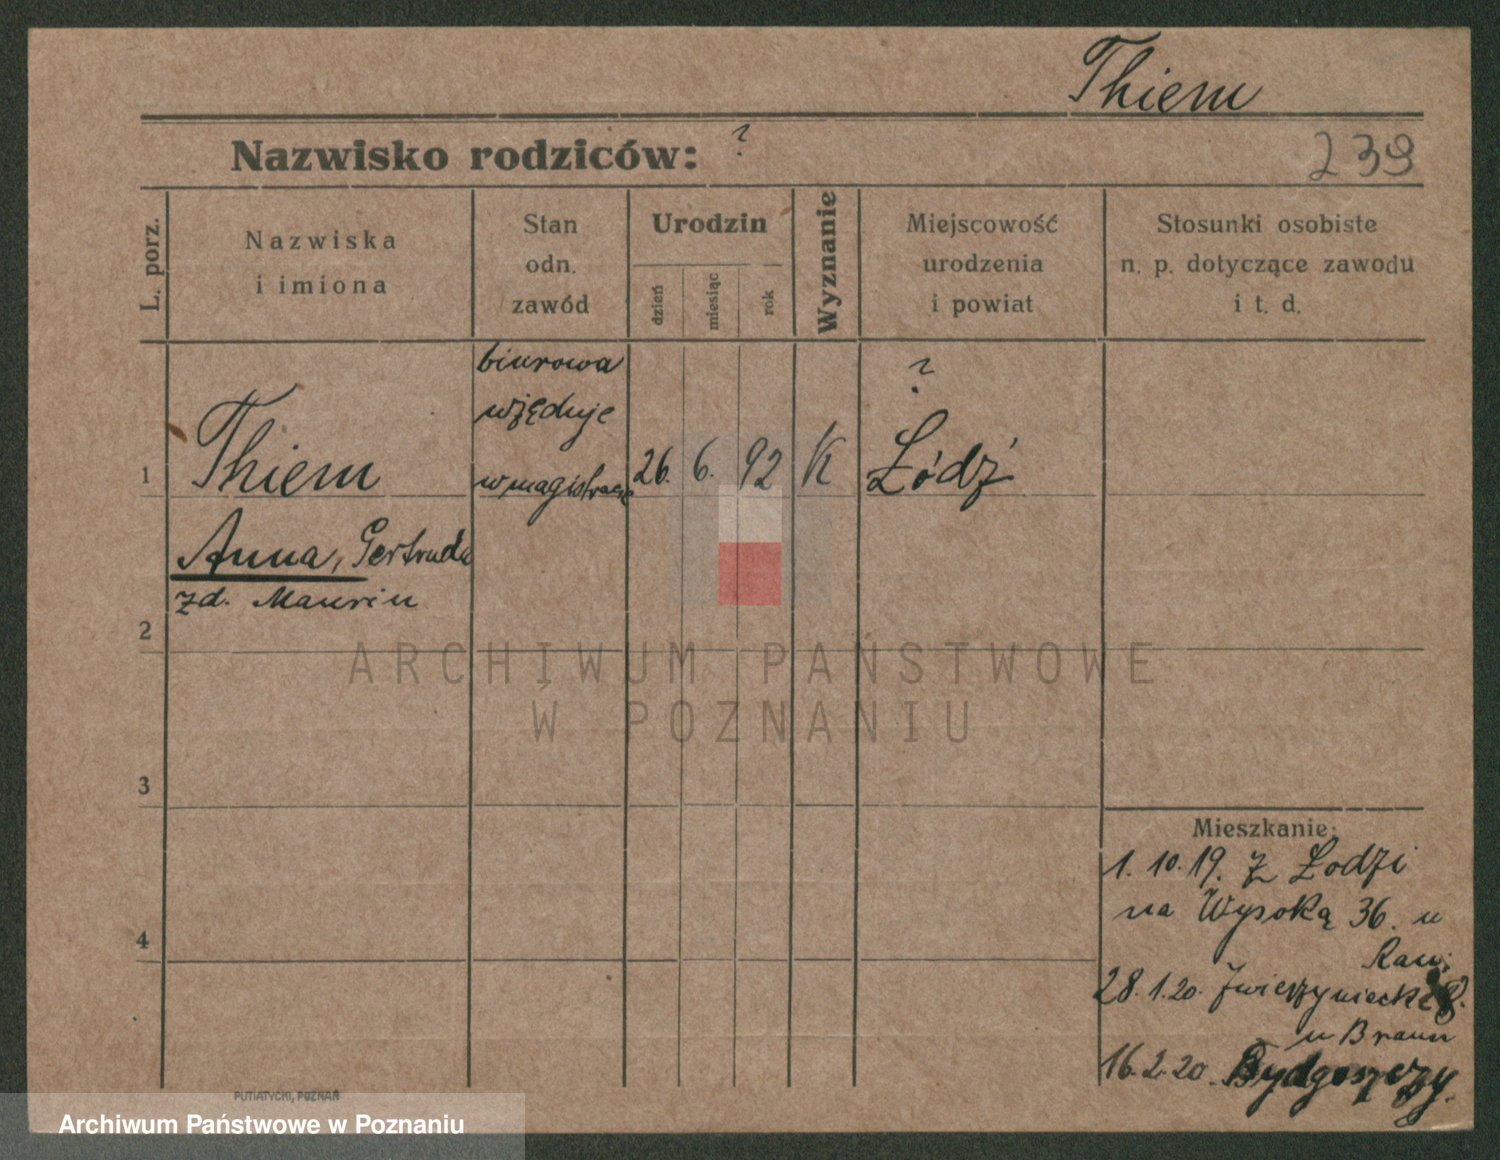 Thiem
Nazwisko rodziców: ?
239
L. porz.
Nazwiska
i imiona
Stan
odn.
zawód
Urodzin
dzień
miesiąc
rok
Wyznanie
Miejscowość
urodzenia
i powiat
Stosunki osobiste
n. p. dotyczące zawodu
i t. d.
1
Thiem
biurowa
w magistracie
26. 6. 92
K
?
Łódź
Anna, Gertruda
zd. Maurin
2
3
4
Mieszkanie:
1. 10. 19. z Łodzi
na Wysoką 36. u
28. 1. 20. Zwierzyniecka
u Braun
16. 2. 20. Bydgoszczy.
PUTIATYCKI, POZNAŃ
ARCHIWUM PAŃSTWOWE
W POZNANIU
Archiwum Państwowe w Poznaniu